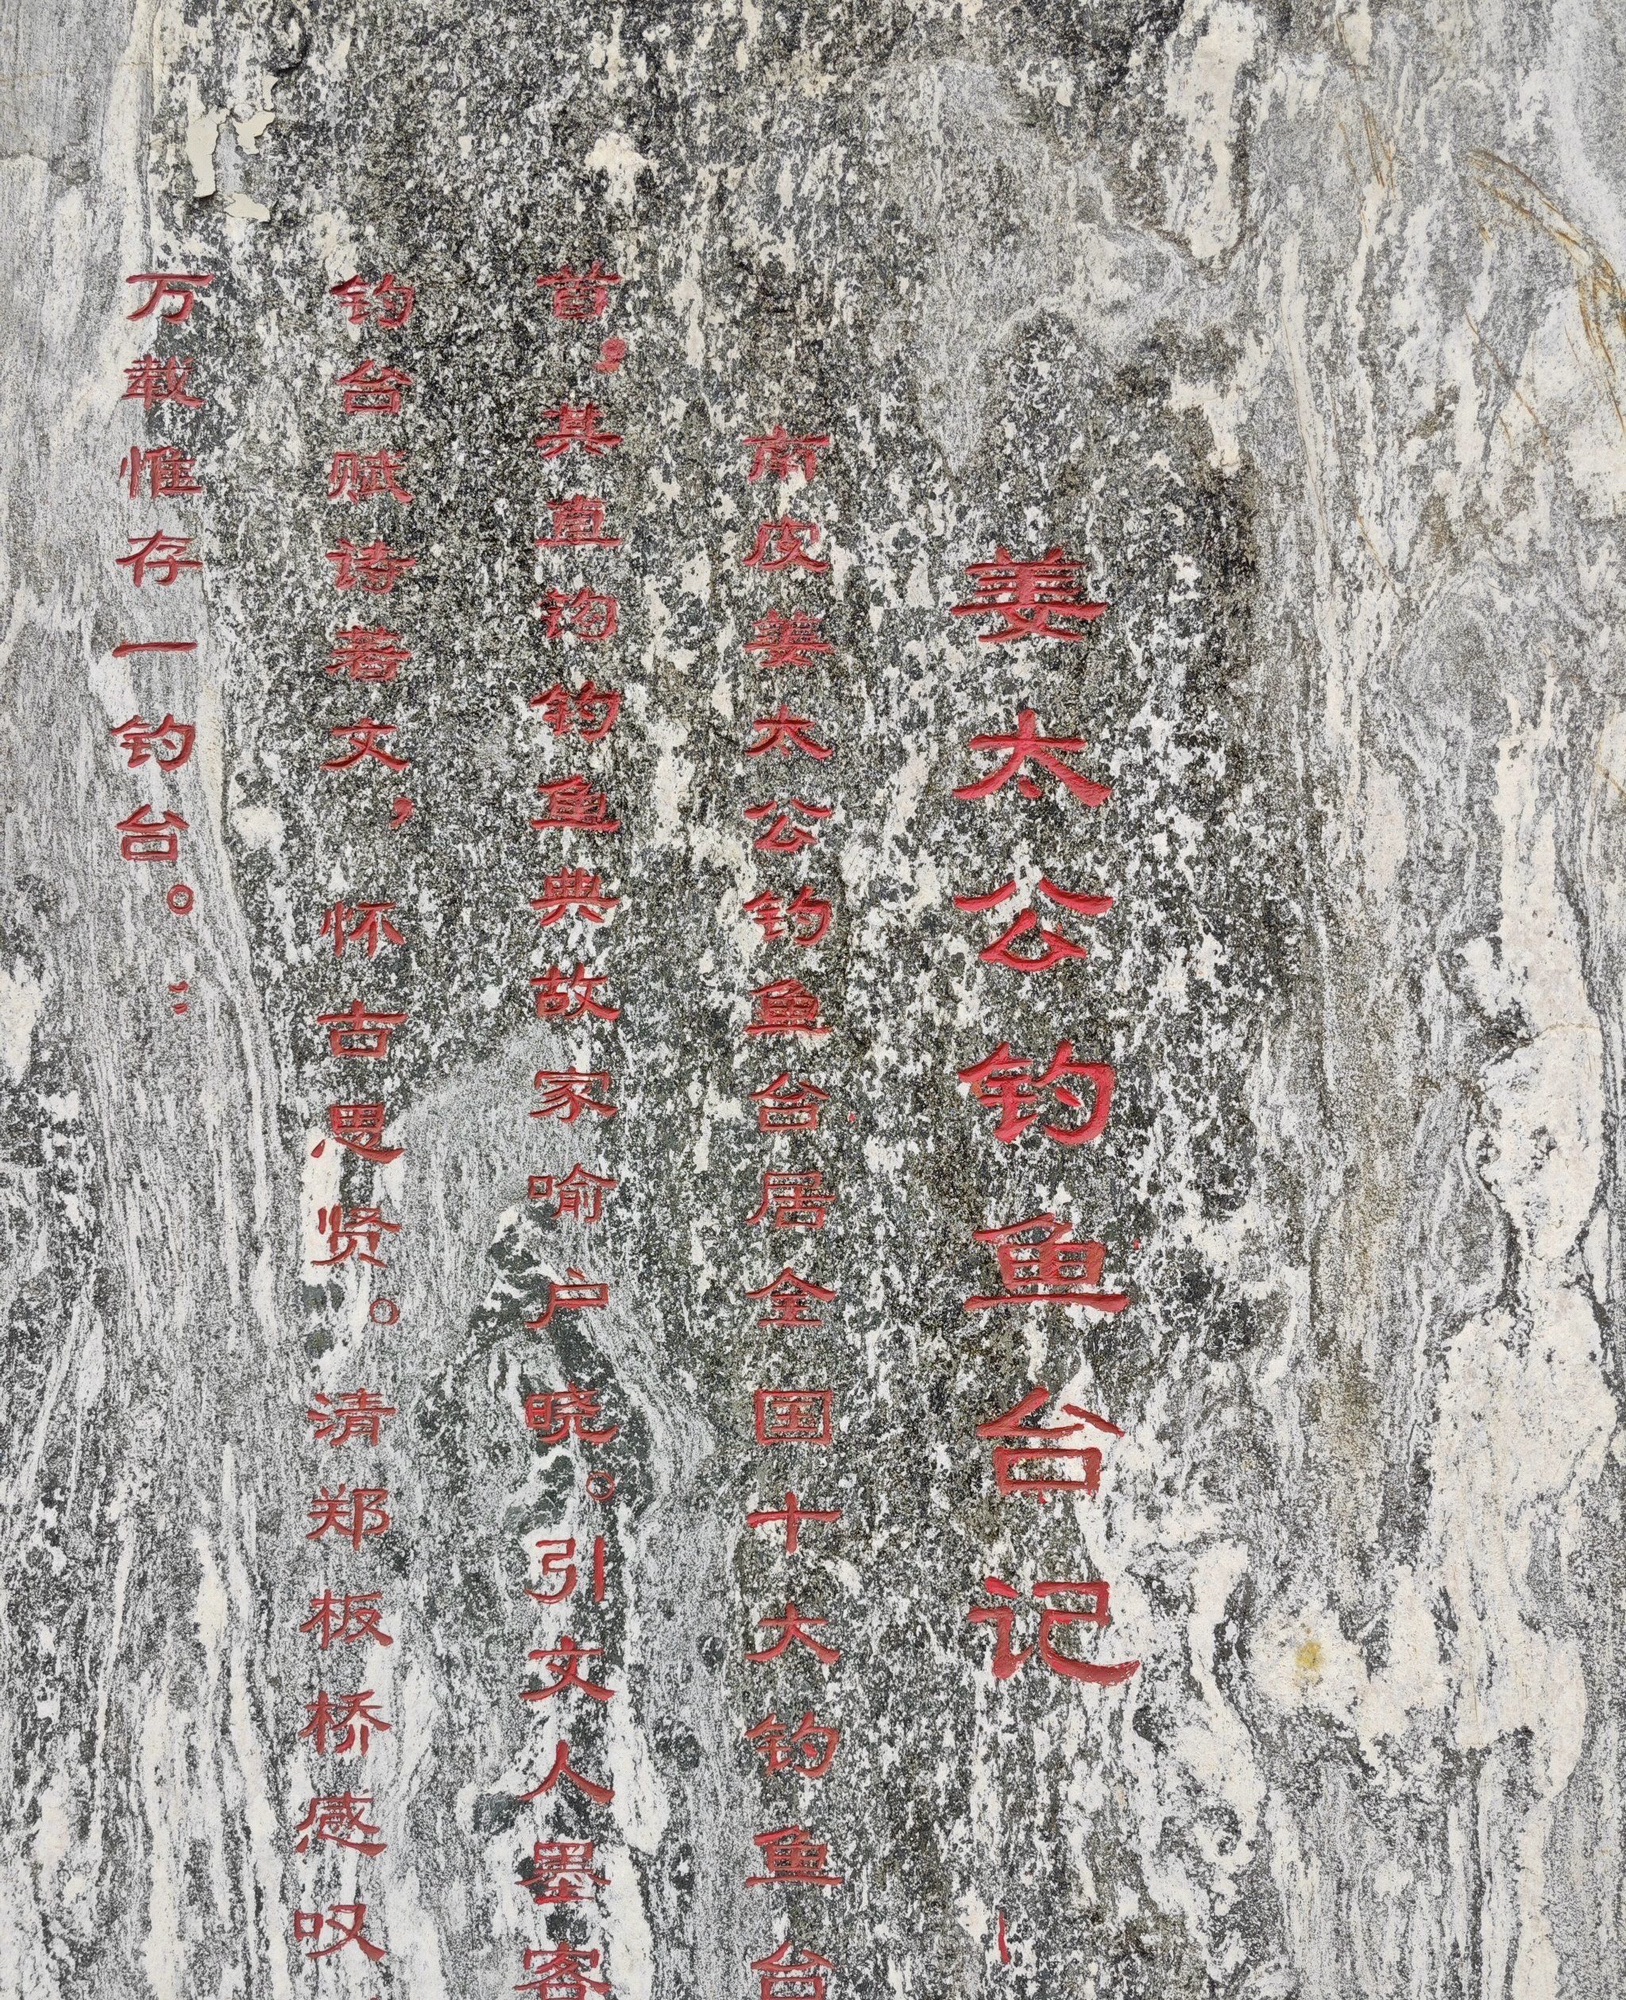 姜太公钓鱼台记
南皮姜太公钓鱼台居全国十大钓鱼台
首，其直钩钓鱼典故家喻户晓。引文人墨客
钓台赋诗著文，怀古思贤。清郑板桥感叹
万载惟存一钓台。：